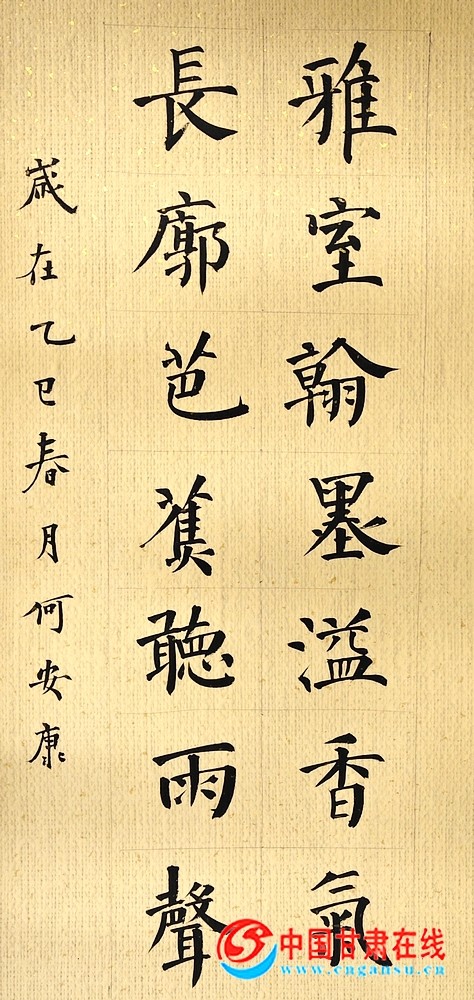 雅室翰墨溢香氣
長廓芭蕉聽雨聲
歲在乙巳春月何安康
中国甘肃在线
www.cngansu.cn